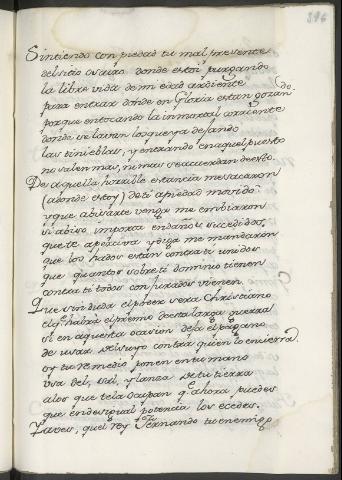 396
Sintiendo con piedad tu mal presente
del sitio oscuro donde estoi purgando
la libre vida de mi edad ardiente
para entrar donde en Gloria estan gozando.
porque en tocando la inmortal
donde se lavan los que ya dexando
las tinieblas, y entrando en aquel puesto
no valen mas, ni mas se acuerdan desto.
De aquella horrible estancia me sacaron
(adonde estoy) de ti a piedad movido
y que a avisarte venga me embiaron
vi abiso, importa en daños sucedidos,
que te aperciva y diga me mandaron
que los hados estan contra ti unidos
que quantos sobre ti dominio tienen
contra ti todos conjurados vienen.
Que sin duda el poder vera Christiano
el q̃ habra el premio desta larga guerra
si en aquesta ocasion dexa el pagano
de usar del suyo contra quien lo encierra
oy tu remedio ponen en tu mano
usa del, sal, y lanza de tu tierra
a los que te la ocupan q̃ ahora puedes
que en desigual potencia los ecedes.
Ya ves, que el rey Fernando tu enemigo